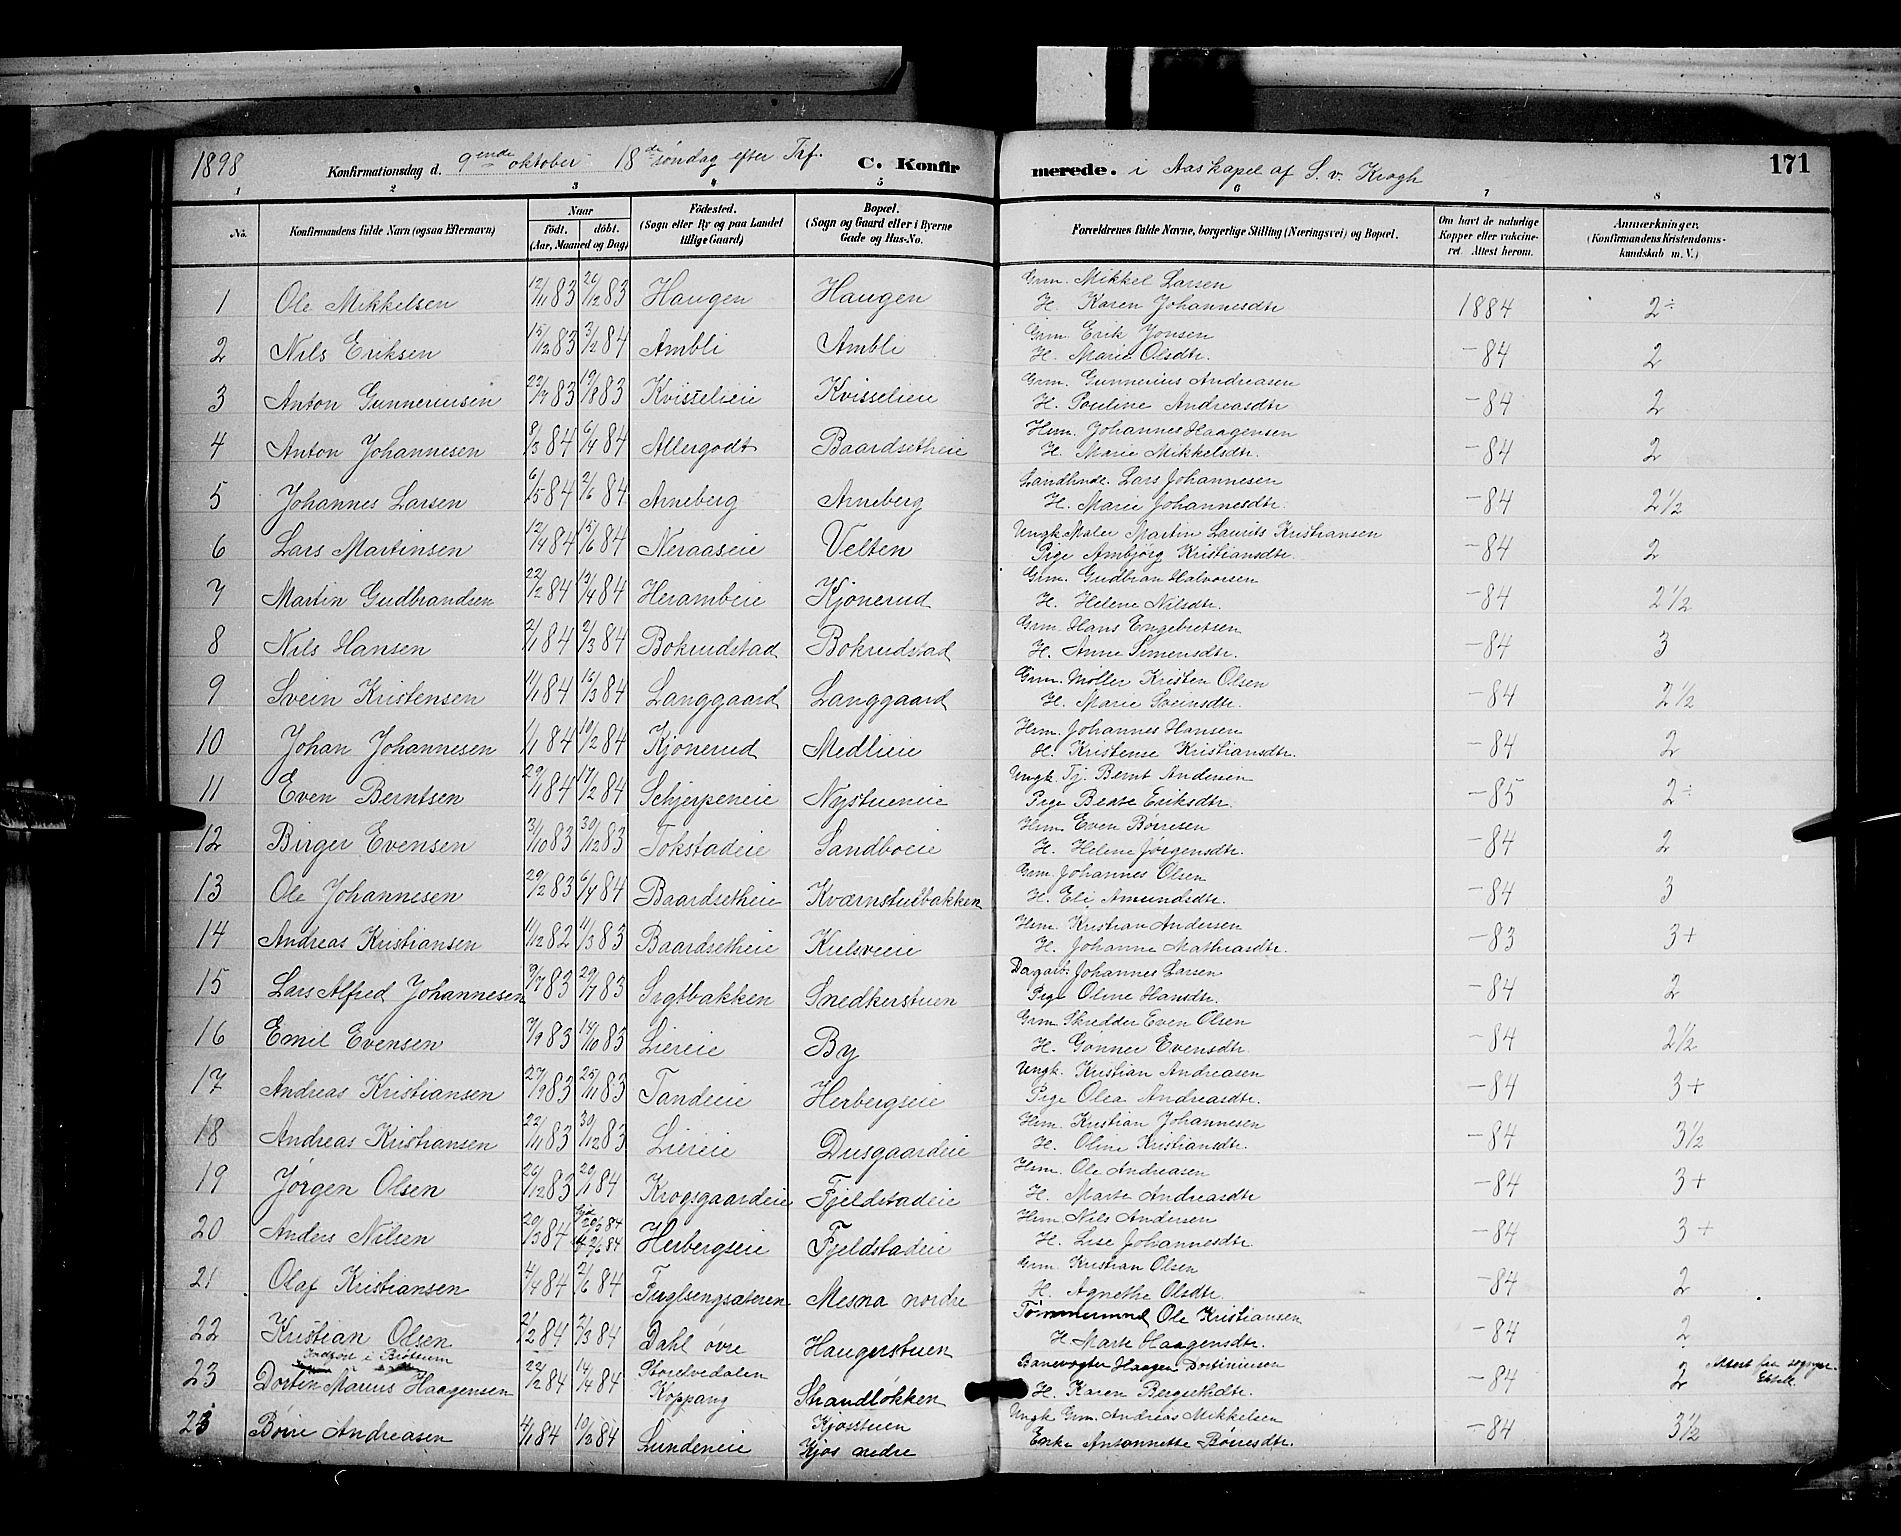 1898 Konfirmationsdag d. 9ende oktober 18de søndag efter Trf. C. Konfir
merede. i Aaskapel af S. v. Krogh 171
1 2 3 4 5 6 7 8
No. Konfirmandens fulde Navn (ogsaa Efternavn) Naar født. døbt. (Aar, Maaned og Dag) Fødested. (Sogn eller By og paa Landet tillige Gaard) Bopæl. (Sogn og Gaard eller i Byerne Gade og Hus-No. Forældrenes fulde Navne, borgerlige Stilling (Næringsvei) og Bopæl. Om havt de naturlige Kopper eller vakcineret. Attest herom. Anmærkninger. (Konfirmandens Kristendomskundskab m. V.)
1 Ole Mikkelsen 12/11 83 26/12 83 Haugen Haugen Grm. Mikkel Larsen
H. Karen Johannesdtr 1884 2÷
2 Nils Eriksen 15/12 83 3/2 84 Ambli Ambli Grm. Erik Jonsen
H. Marie Olsdtr. -84 2
3 Anton Gunneriussen 22/7 83 19/8 83 Kvisselieie Kvisselieie Grm. Gunnerius Andreasen
H. Pouline Andreasdtr -84 2
4 Anton Johannesen 8/3 84 6/4 84 Allergodt Baardsetheie Hrm. Johannes Haagensen
H. Marie Mikkelsdtr. -84 2
5 Johannes Larsen 6/5 84 2/6 84 Arneberg Arneberg Landhndl. Lars Johannesen
H. Marie Johannesdtr. -84 2½
6 Lars Martinsen 12/4 84 15/6 84 Neraaseie Velten Ungk. Maler Martin Laurits Kristiansen
Pige Ambjørg Kristiansdtr. -84 2
7 Martin Gudbrandsen 22/2 84 13/4 84 Herambeie Kjønerud Grm. Gudbran Halvorsen
H. Helene Nilsdtr. -84 2½
8 Nils Hansen 2/1 84 2/3 84 Bokrudstad Bokrudstad Grm. Hans Engebretsen
H. Anne Simensdtr. -84 3
9 Svein Kristensen 11/1 84 16/3 84 Langgaard Langgaard Grm. Møller Kristen Olsen
H. Marie Sveinsdtr. -84 2½
10 Johan Johannesen 1/1 84 10/2 84 Kjønerud Medlieie Hrm. Johannes Hansen
H. Kristense Kristiansdtr. -84 2
11 Even Berntsen 29/1 84 17/2 84 Schjerpeneie Nystueneie Ungk. Tj. Bernt Andersen
Pige Beate Eriksdtr. -85 2÷
12 Birger Evensen 3/10 83 30/12 83 Tokstadeie Sandboeie Hrm. Even Børresen
H. Helene Jørgensdtr. -84 2
13 Ole Johannesen 29/12 83 6/4 84 Baardsetheie Kværnstubakken Grm. Johannes Olsen
H. Eli Amundsdtr. -84 3
14 Andreas Kristiansen 11/12 82 11/3 83 Baardsetheie Kulsveie Hrm. Kristian Andersen
H. Johanne Mathiasdtr. -83 3+
15 Lars Alfred Johannesen 9/7 83 29/7 83 Sigtbakken Snedkerstuen Dagarb. Johannes Larsen
Pige Oline Hansdtr. -84 2
16 Emil Evensen 7/9 83 14/10 83 Liereie By Grm. Skredder Even Olsen
H. Gønner Evensdtr -84 2½
17 Andreas Kristiansen 27/9 83 25/11 83 Tandeie Herbergseie Ungk. Kristian Andreasen
Pige Olea Andreasdtr. -84 3+
18 Andreas Kristiansen 22/11 83 30/12 83 Liereie Dusgaardeie Hrm. Kristian Johannesen
H. Oline Kristiansdtr. -84 3½
19 Jørgen Olsen 26/12 83 20/1 84 Krogsgaardeie Fjeldstadeie Hrm. Ole Andreasen
H. Marte Andreasdtr -84 3+
20 Anders Nilsen 20/3 84 20/3 84 2/6 84 Herbergseie Fjeldstadeie Hrm. Nils Andersen
H. Lise Johannesdtr -84 3+
21 Olaf Kristiansen 4/4 84 2/6 84 Fuglsengsæteren Mesna nordre Grm. Kristian Olsen
H. Agnethe Olsdtr. -84 2
22 Kristian Olsen 2/2 84 2/3 84 Dahl øvre Haugerstuen Tømmermnd Ole Kristiansen
H. Marte Haagensdtr. -84 2
Indført i Brøttum
23 Dorten Marius Haagensen 22/2 84 14/4 84 Storelvedalen Koppang Strandløkken Banevogter Haagen Dortiniusen
H. Karen Bergsethdtr. -84 2 Attest fra sognpr.
23 Børre Andreasen 4/1 84 10/2 84 Lundeneie Kjosstuen Kjos nedre Ungk. Grm. Andreas Mikkelsen
Enke Antonnette Børresdtr. -84 3½